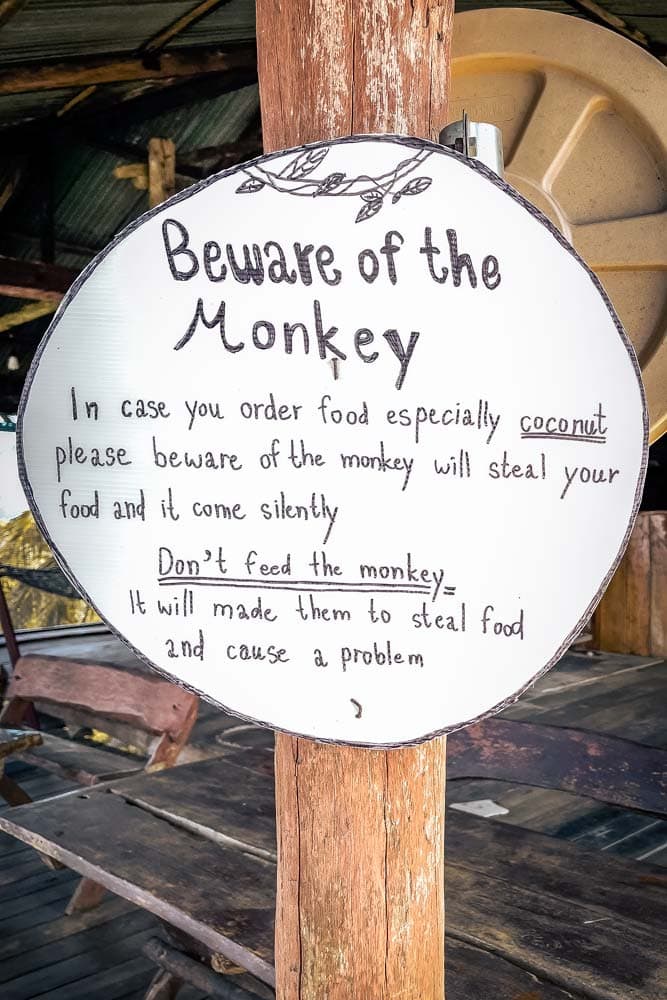 Beware of the
Monkey
In case you order food especially coconut
please beware of the monkey will steal your
food and it come silently
Don't feed the monkey
It will made them to steal food
and cause a problem